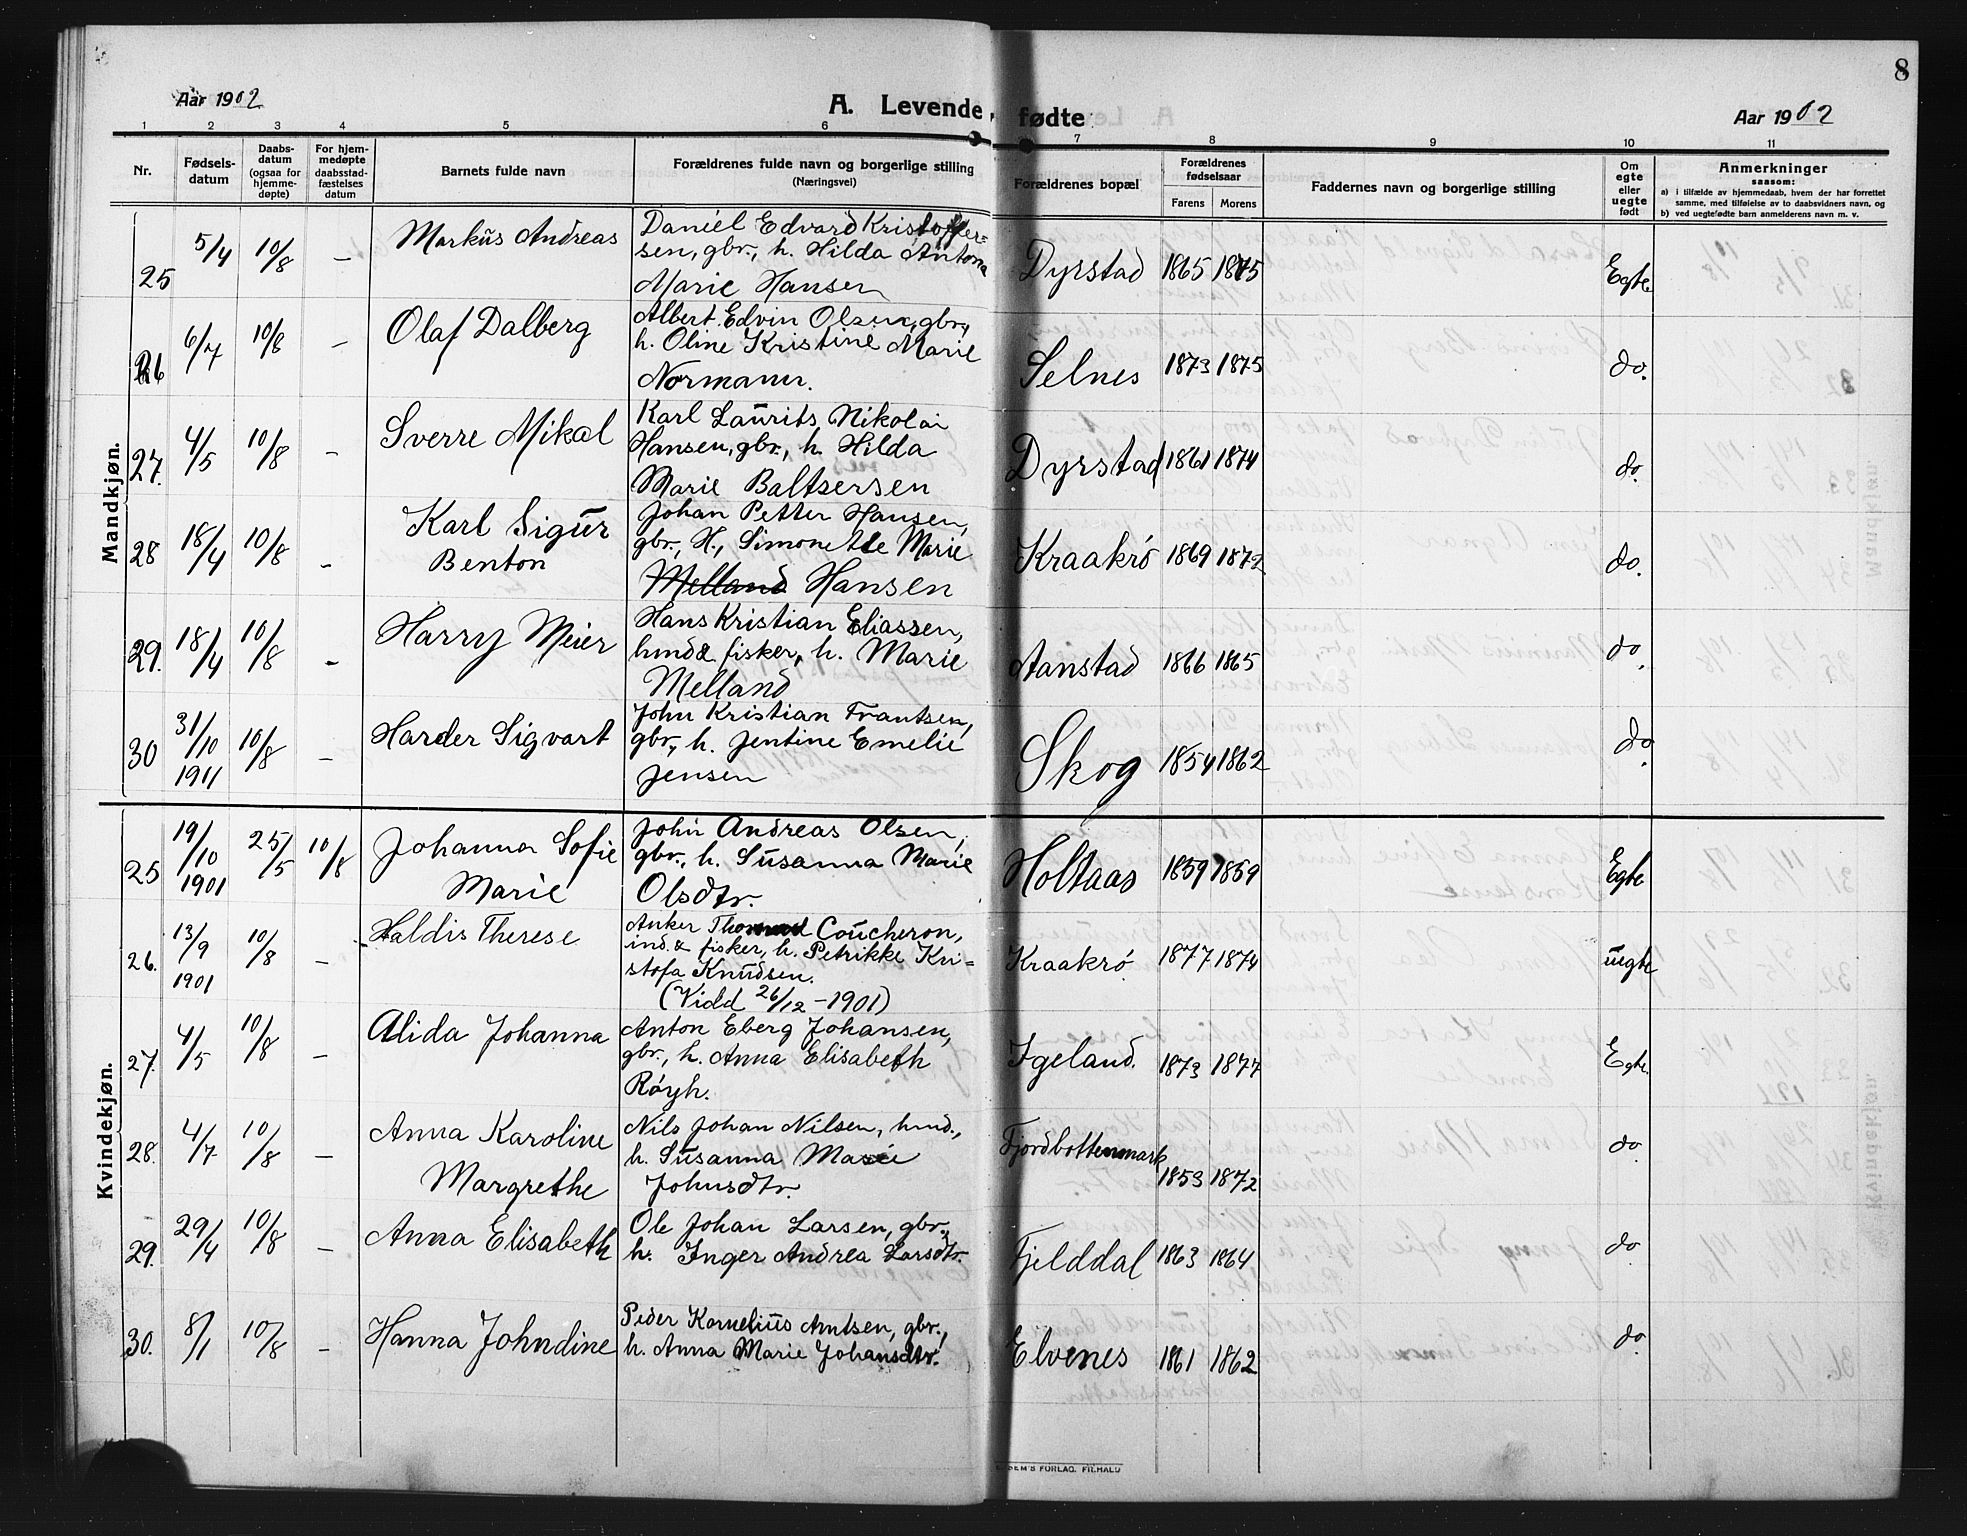 8
Aar 1902
A. Levende, fødte
Aar 1902
1 2 3 4 5 6 7 8 9 10 11
Nr.
Fødsels-
datum
Daabs-
datum
(ogsaa for
hjemme-
døpte)
For hjem-
medøpte
daabsstad-
fæstelses
datum
Barnets fulde navn
Forældrenes fulde navn og borgerlige stilling
(Næringsvei)
Forældrenes bopæl
Forældrenes
fødselsaar
Farens Morens
Faddernes navn og borgerlige stilling
Om
egte
eller
uegte
født
Anmerkninger
saasom:
a) i tilfælde av hjemmedaab, hvem der har forrettet
samme, med tilføielse av to daabsvidners navn, og
b) ved uegtefødte barn anmelderens navn m. v.
Mandkjøn.
25 5/4 10/8 – Markus Andreas
Daniel Edvard Kristoffer-
sen, gbr., h. Hilda Antona
Marie Hansen
Dyrstad 1865 1875 Egte
26 6/7 10/8 – Olaf Dalberg
Albert Edvin Olsen, gbr.,
h. Oline Kristine Marie
Normann.
Selnes 1873 1875 do.
27. 4/5 10/8 – Sverre Mikal
Karl Laurits Nikolai
Hansen, gbr., h. Hilda
Marie Baltsersen
Dyrstad 1861 1874 do.
28 18/4 10/8 – Karl Sigur
Benton
Johan Petter Hansen,
gbr., H., Simonette Marie
Melland Hansen
Kraakrö 1869 1872 do.
29. 18/4 10/8 – Harry Meier
Hans Kristian Eliassen,
hmd & fisker, h. Marie
Melland
Aanstad 1866 1865 do.
30 31/10 1911 10/8 – Harder Sigvart
John Kristian Frantsen,
gbr., h. Jentine Emelie
Jensen
Skog 1854 1862 do.
Kvindekjøn.
25 19/10 1901 25/5 10/8 Johanna Sofie
Marie
John Andreas Olsen,
gbr., h. Susanna Marie
Olsdtr.
Holtaas 1859 1869 Egte
26. 13/9 1901 10/8 – Haldis Therese
Anker Coucheron,
ind. & fisker, h. Petrikke Kri-
stofa Knudsen.
(Vidd 26/12 – 1901)
Kraakrö 1877 1874 uegte
27. 4/5 10/8 – Alida Johanna
Anton Eberg Johansen,
gbr., h. Anna Elisabeth
Röyh.
Igeland. 1873 1877 Egte.
28. 4/7 10/8 – Anna Karoline
Margrethe
Nils Johan Nilsen, hmd.,
h. Susanna Marie
Johnsdtr.
Fjordbottenmark 1853 1872 do.
29. 29/4 10/8 – Anna Elisabeth
Ole Johan Larsen, gbr.,
h. Inger Andrea Larsdtr.
Fjelddal 1863 1864 do.
30. 8/1 10/8 – Hanna Johndine
Peder Kornelius Arntsen, gbr.,
h. Anna Marie Johansdtr.
Elvenes 1861 1862 do.
FORLAG, FR.HALD